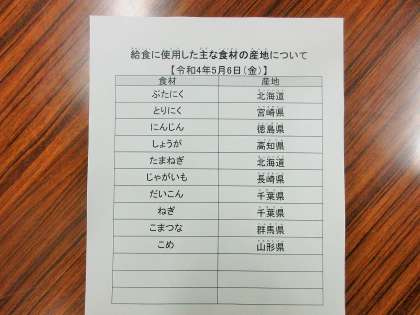 給食に使用した主な食材の産地について
【令和4年5月6日（金）】
食材 産地
ぶたにく 北海道
とりにく 宮崎県
にんじん 徳島県
しょうが 高知県
たまねぎ 北海道
じゃがいも 長崎県
だいこん 千葉県
ねぎ 千葉県
こまつな 群馬県
こめ 山形県